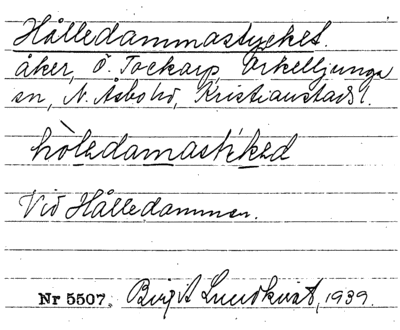 Hålledammastycket.
åker, Ö. Tockarp, Örkelljunga
sn, N. Åsbo hd, Kristianstads l.
hòledamastikəd
Vid Hålledammen.
Nr 5507. Birgit Lundkvist, 1939.